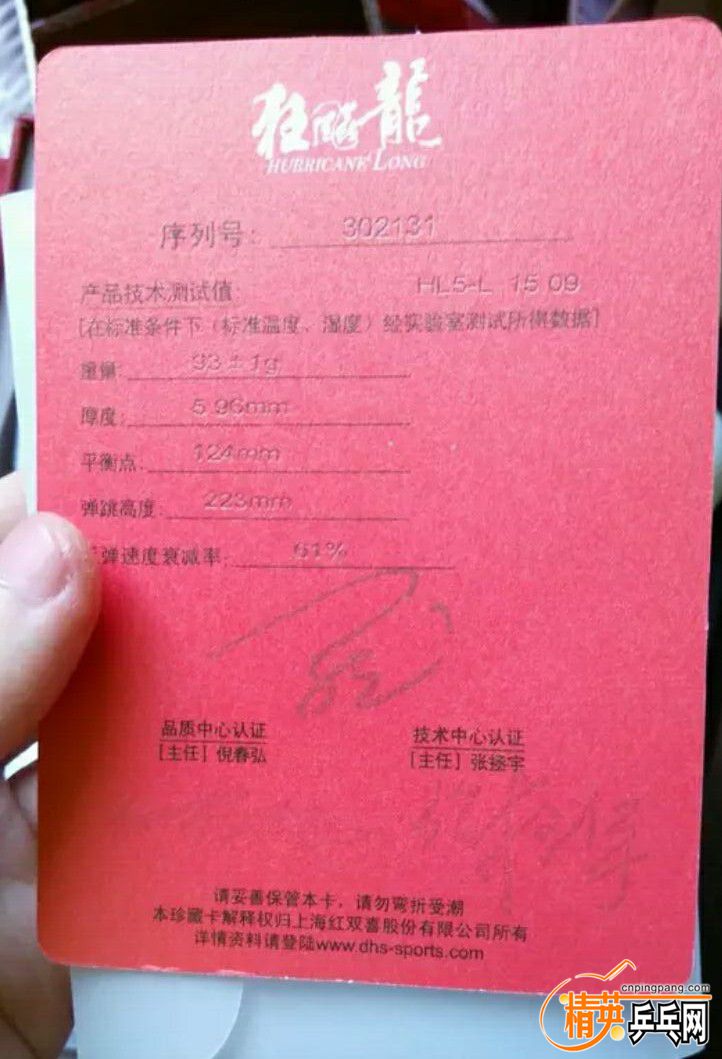 狂飚龍
HURRICANE LONG
序列号: 302131
产品技术测试值: HL5-L 15 09
[在标准条件下（标准温度、湿度）经实验室测试所得数据]
重量: 93±1g
厚度: 5.96mm
平衡点: 124mm
弹跳高度: 223mm
弹速度衰减率: 61%
品质中心认证 技术中心认证
[主任] 倪春弘 [主任] 张拯宇
请妥善保管本卡，请勿弯折受潮
本珍藏卡解释权归上海红双喜股份有限公司所有
详情资料请登陆www.dhs-sports.com
cnpingpang.com
精英乒乓网